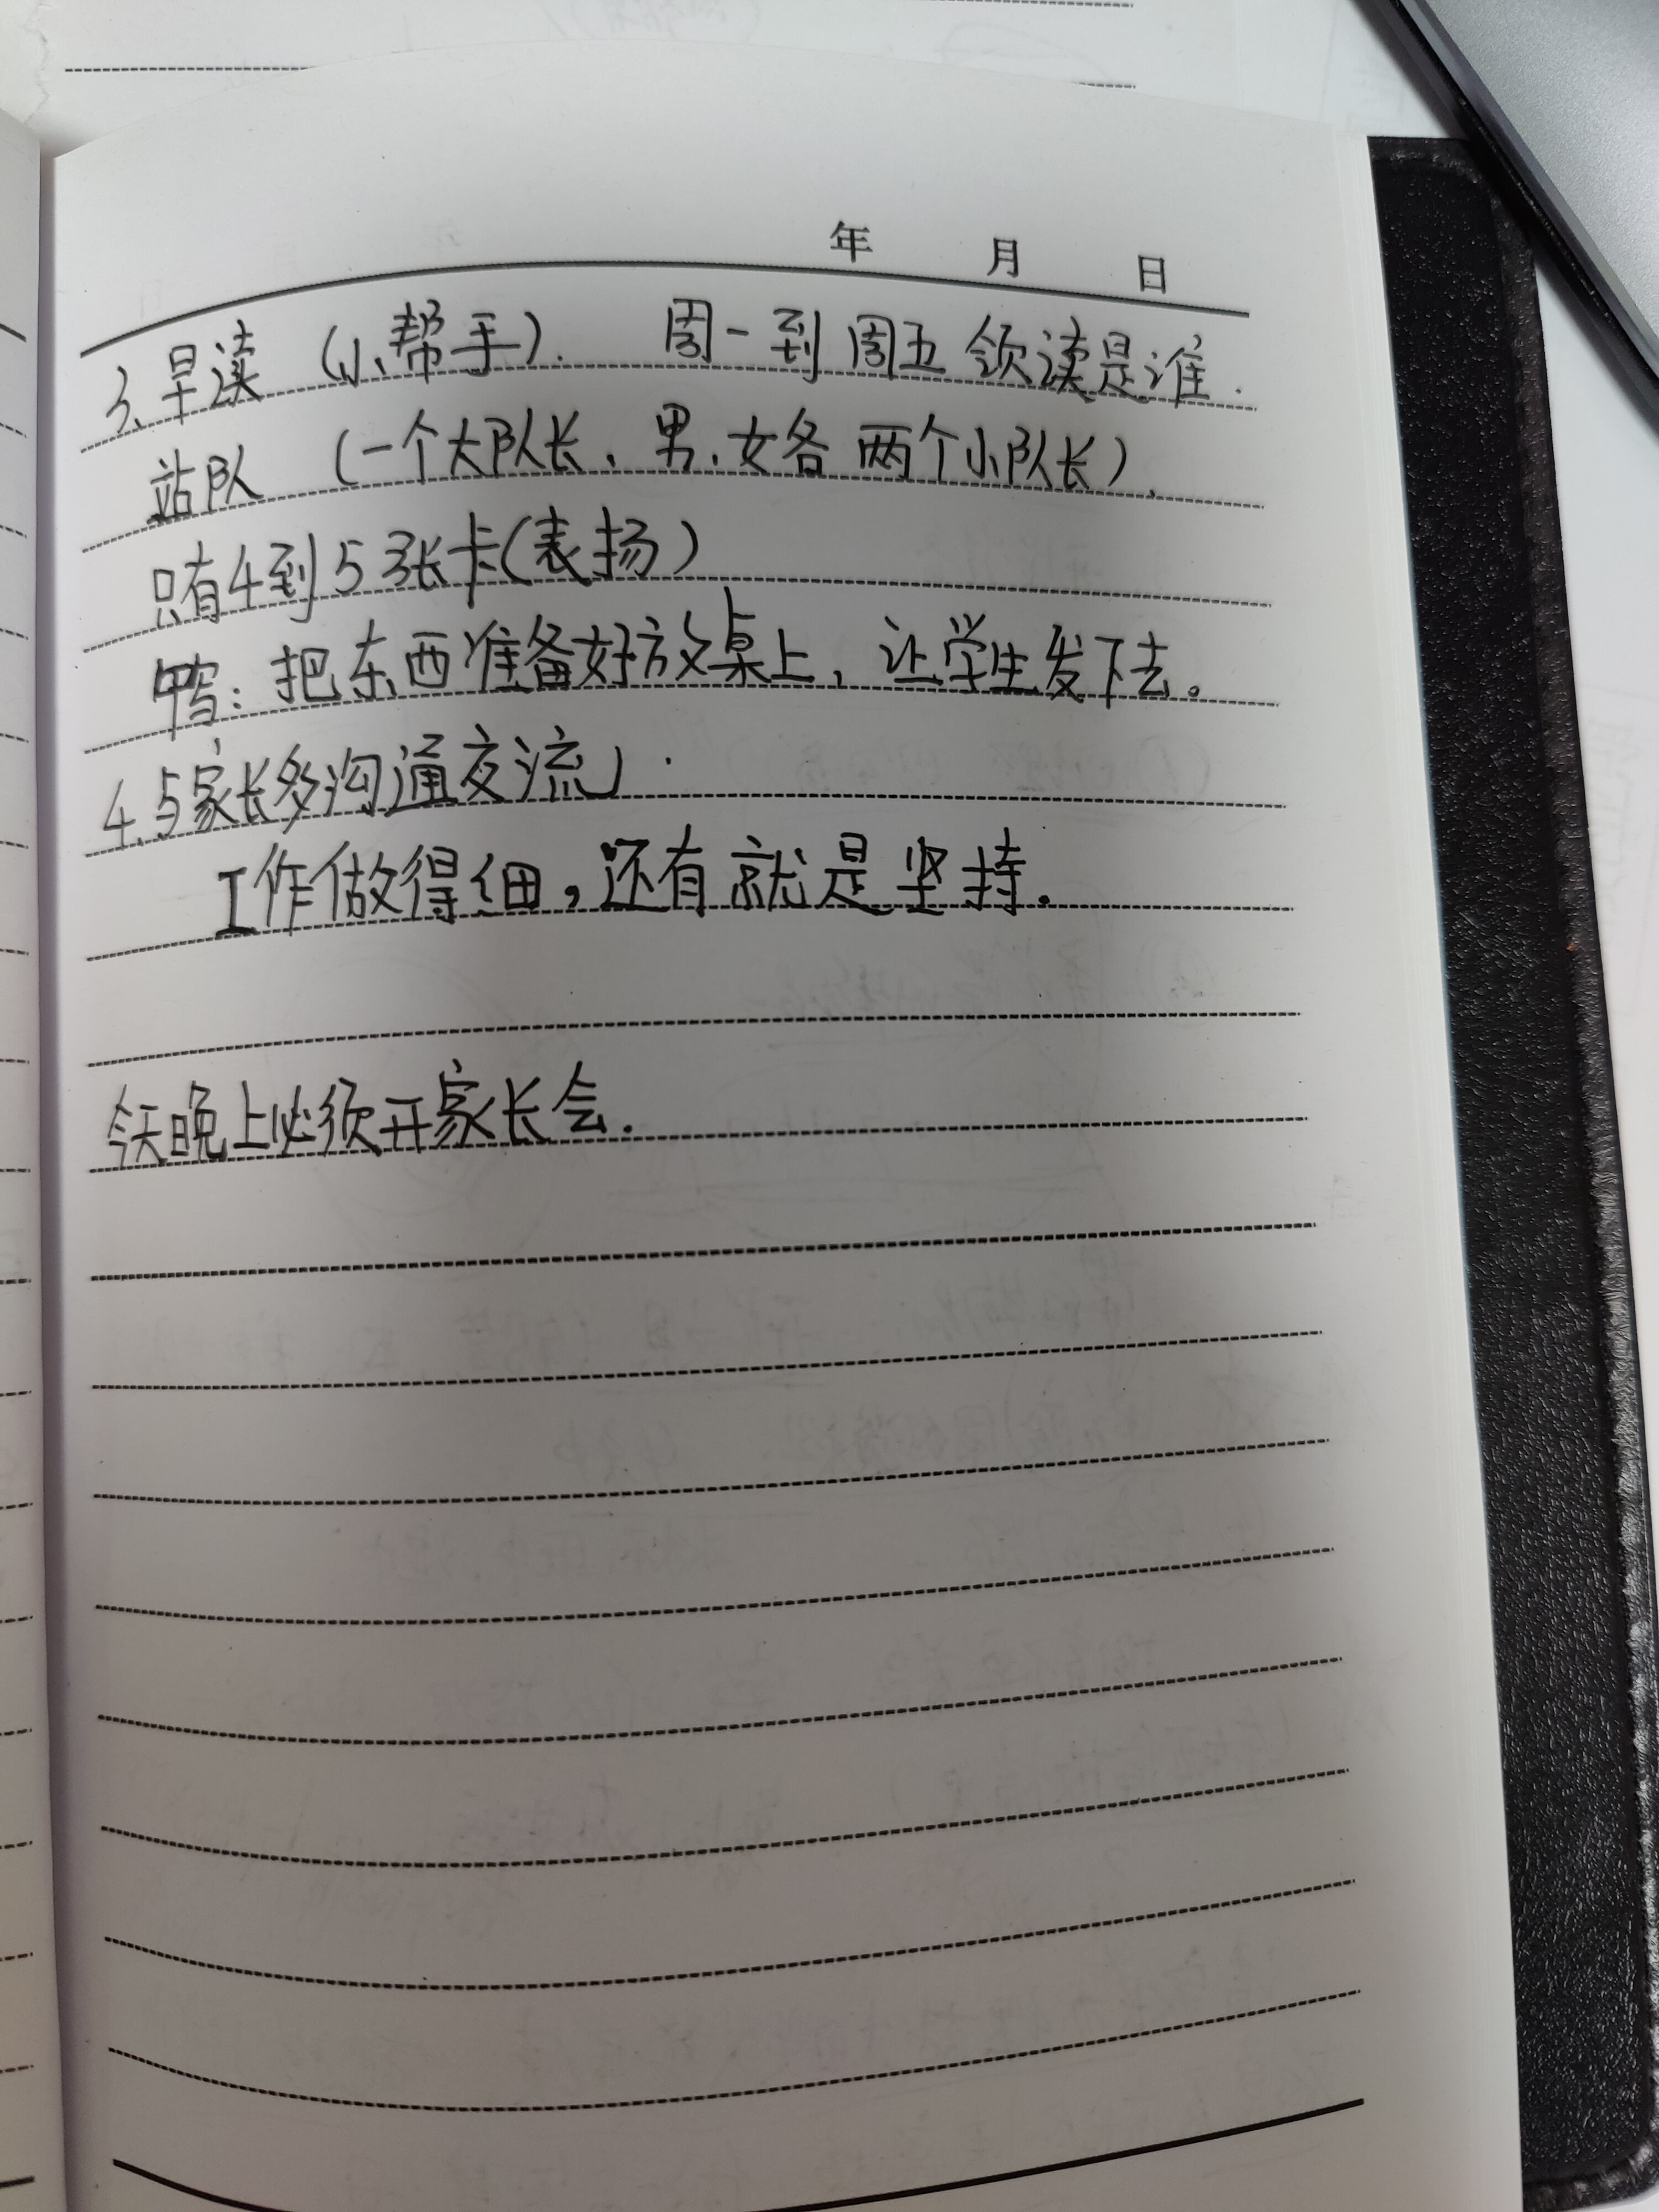 年 月 日
3.早读 (小帮手). 周一到周五领读是谁.
站队 (一个大队长、男、女各两个小队长).
只有4到5张卡(表扬)
: 把东西准备好放桌上, 让学生发下去。
4.与家长多沟通交流).
工作做得细,还有就是坚持.
今天晚上必须开家长会.